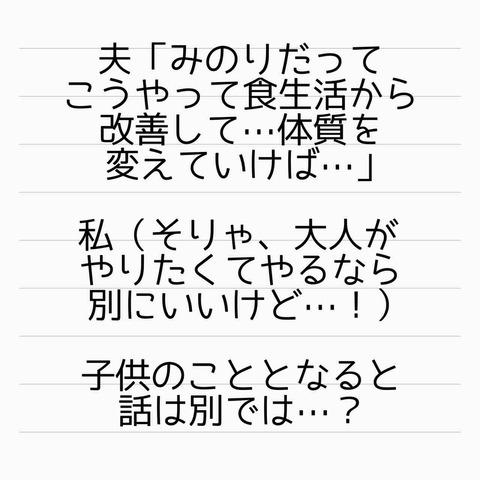 夫「みのりだって
こうやって食生活から
改善して…体質を
変えていけば…」
私（そりゃ、大人が
やりたくてやるなら
別にいいけど…！）
子供のこととなると
話は別では…？